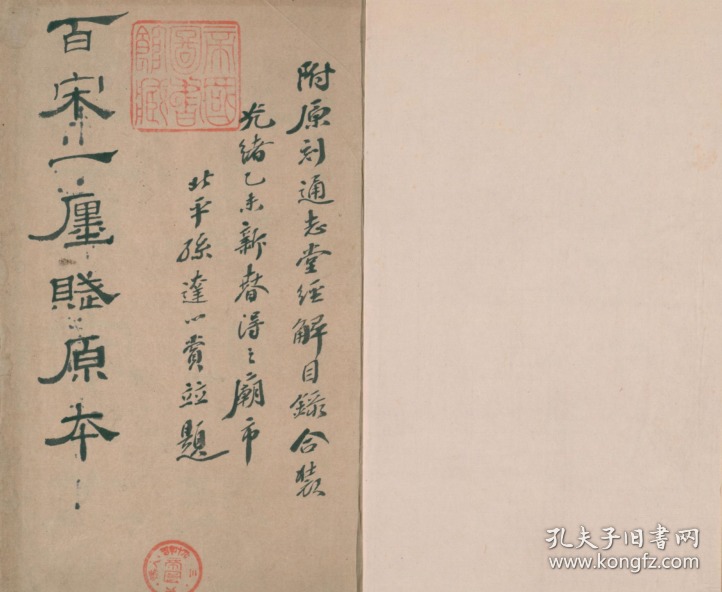 附原刻通志堂經解目錄合裝
光緒乙未新春得之廟市
北平孫達心賞並題
百宋一廛賦原本
帝國圖書館藏
孔夫子旧书网
www.kongfz.com